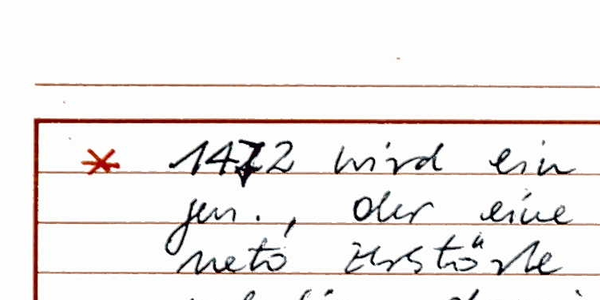 * 1472 wird ein
gen., der eine
neto zerstörte